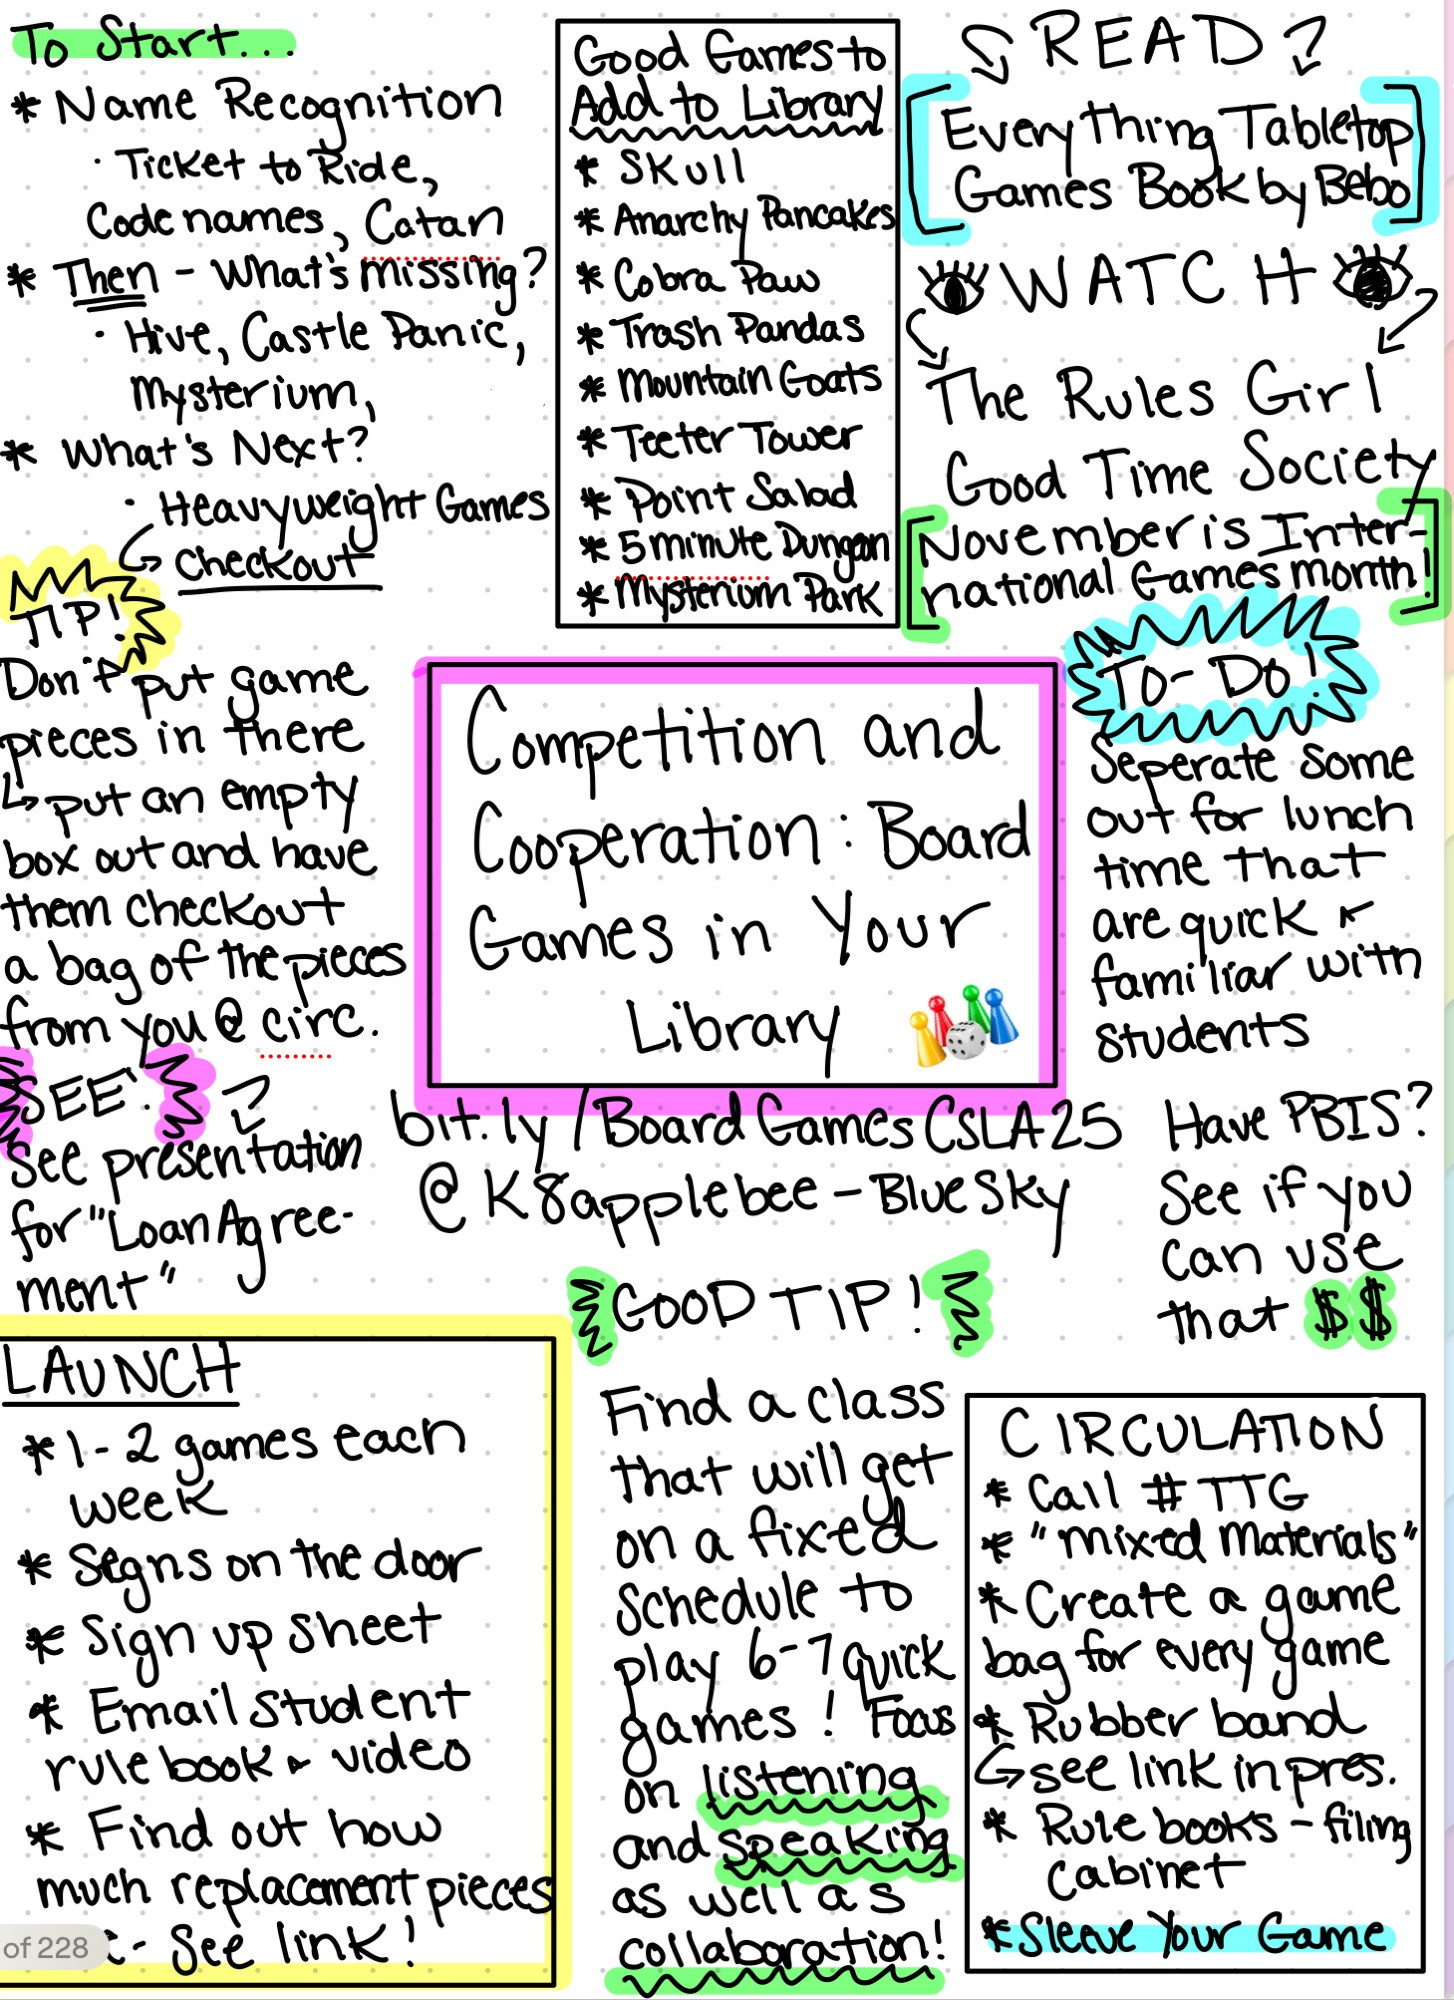 To Start...
* Name Recognition
· Ticket to Ride,
Codenames, Catan
* Then - What's missing?
· Hive, Castle Panic,
Mysterium,
* What's Next?
· Heavyweight Games
checkout
TIP!
Don't put game
pieces in there
↳ put an empty
box out and have
them checkout
a bag of the pieces
from you @ circ.
SEE!
See presentation
for "Loan Agree-
ment"
Good Games to
Add to Library
* Skull
* Anarchy Pancakes
* Cobra Paw
* Trash Pandas
* Mountain Goats
* Teeter Tower
* Point Salad
* 5 minute Dungeon
* Mysterium Park
READ
[Everything Tabletop
Games Book by Bebo]
WATCH
The Rules Girl
Good Time Society
[November is Inter-
national Games month!]
To-Do!
Seperate some
out for lunch
time that
are quick +
familiar with
students
Competition and
Cooperation: Board
Games in Your
Library
bit.ly/BoardGamesCSLA25
@K8applebee - BlueSky
Have PBIS?
See if you
can use
that $$
LAUNCH
* 1-2 games each
week
* Signs on the door
* Sign up sheet
* Email student
rule book & video
* Find out how
much replacement pieces
- See link!
of 228
GOOD TIP!
Find a class
that will get
on a fixed
schedule to
play 6-7 quick
games! Focus
on listening
and speaking
as well as
collaboration!
CIRCULATION
* Call # TTG
* "Mixed Materials"
* Create a game
bag for every game
* Rubber band
↳ see link in pres.
* Rule books - filing
cabinet
* Sleeve Your Game